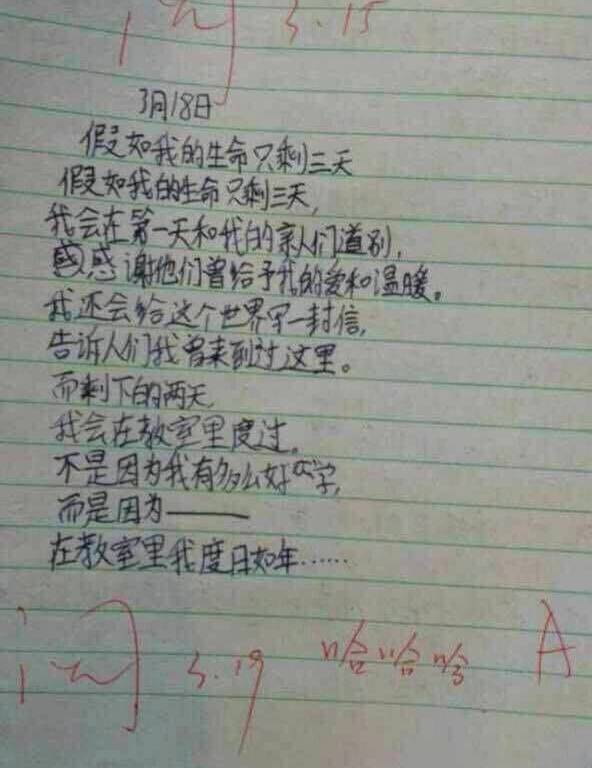 阅 3.15
3月18日
假如我的生命只剩三天
假如我的生命只剩三天,
我会在第一天和我的亲人们道别,
感谢他们曾给予我的爱和温暖。
我还会给这个世界写一封信,
告诉人们我曾来到过这里。
而剩下的两天,
我会在教室里度过。
不是因为我有多么好学,
而是因为——
在教室里我度日如年……
阅 3.19 哈哈哈 A